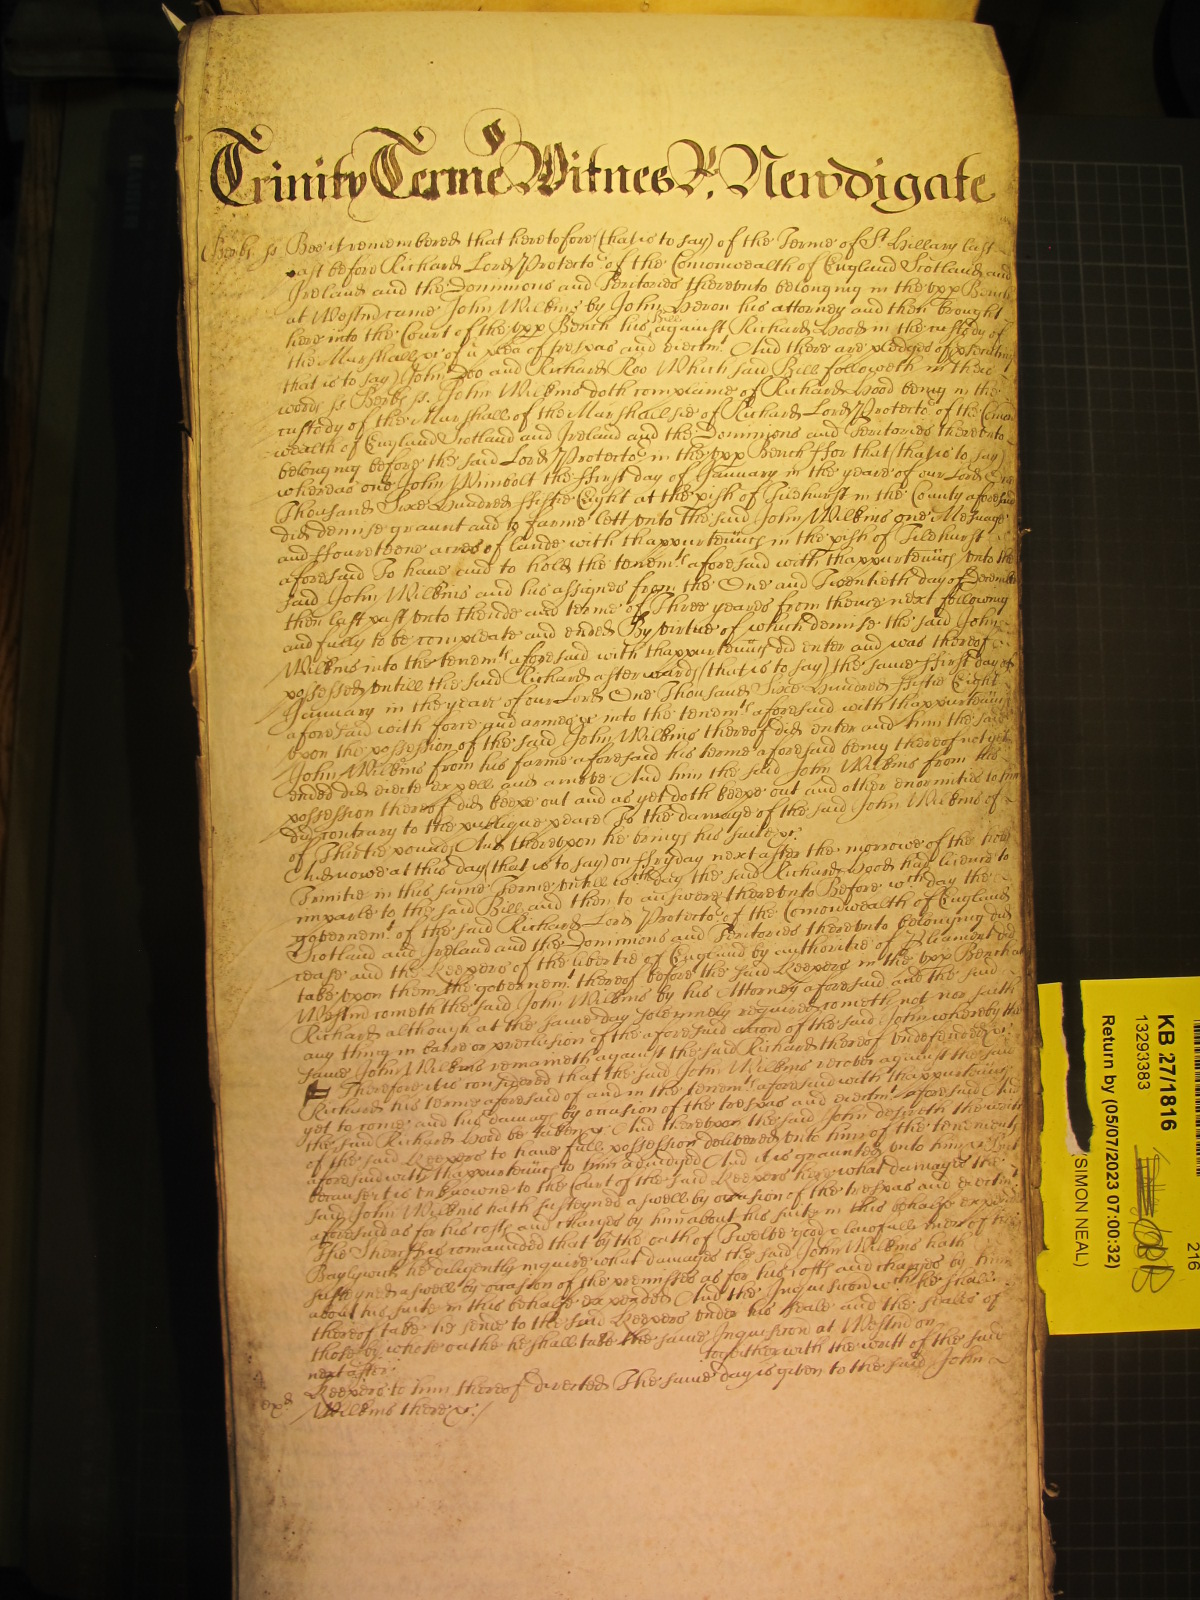 Trinity Terme Witnes R. Newdigate
Berks ss Bee it remembred that heretofore (that is to say) of the Terme of St. Hillary last
past before Richard Lord Protector of the Comonwealth of England Scotland and
Ireland and the Dominions and Territories thereunto belonging in the upp Bench
at Westm came John Wilkins by John Heron his attorney and then brought
here into the Court of the upp Bench his Bill against Richard Hood in the custody of
the Marshall &c of a plea of trespas and eiectmt. And there are pledges of
that is to say) John Doo and Richard Roo Which said Bill followeth in these
words ss Berks ss. John Wilkins doth complaine of Richard Hood being in the
custody of the Marshall of the Marshalsie of Richard Lord Protector of the Comon
wealth of England Scotland and Ireland and the Dominions and Territories thereunto
belonging before the said Lord Protector in the upp Bench ffor that (that is to say)
whereas one John Wimbolt the ffirst day of January in the yeare of our Lord One
Thousand Sixe Hundred ffiftie Eight at the pish of Tilehurst in the County aforesaid
did demise graunt and to farme lett unto the said John Wilkins one Mesuage
and ffoureteene acres of lande with thappurtenncs in the pish of Tilehurst
aforesaid To have and to hold the tenemts aforesaid with thappurtenncs unto the
said John Wilkins and his assignes from the One and Twentieth day of December
then last past unto thende and terme of Three yeares from thence next following
and fully to be compleate and ended By virtue of which demise the said John
Wilkins into the tenemts aforesaid with thappurtenncs did enter and was thereof
possessed untill the said Richard afterwards (that is to say) the same ffirst day of
January in the yeare of our Lord One Thousand Sixe Hundred ffiftie Eight
aforesaid with force and armes &c into the tenemts aforesaid with thappurtenncs
upon the possession of the said John Wilkins thereof did enter and him the said
John Wilkins from his farme aforesaid his terme aforesaid being thereof not yet
ended did eiecte expell and amove And him the said John Wilkins from his
possession thereof did keepe out and as yet doth keepe out and other enormities to him
did contrary to the publique peace To the damage of the said John Wilkins of
of Thirtie pounds And thereupon he brings his suite &c.
And nowe at this day (that is to say) on ffryday next after the morrowe of the
Trinitie in this same Terme untill wch day the said Richard Hood had licence to
imparle to the said Bill and then to answere thereunto Before wch day the
governemt of the said Richard Lord Protector of the Comonwealth of England
Scotland and Ireland and the Dominions and Territories thereunto belonging did
cease and the Keepers of the libertie of England by authoritie of Pliament did
take upon them the governemt thereof before the said Keepers in the upp Bench at
Westm cometh the said John Wilkins by his Attorney aforesaid and the said
Richard although at the same day solemnely required cometh not nor saith
any thing in barre or preclusion of the aforesaid accon of the said John whereby the
same John Wilkins remaineth against the said Richard thereof undefended &c.
Therefore it is considered that the said John Wilkins recover against the said
Richard his terme aforesaid of and in the tenemts aforesaid with thappurtenncs
yet to come and his damags by occasion of the trespas and eiectmt aforesaid And
the said Richard Hood be taken &c And thereupon the said John desireth the writt
of the said Keepers to have full possession delivered unto him of the tenements
aforesaid with thappurtenncs to him adiudged And it is graunted unto him &c But
because it is unknowne to the Court of the said Keepers here what damages the
said John Wilkins hath susteyned aswell by occasion of the trespas and eiectmt
aforesaid as for his costs and charges by him about his suite in this behalfe expended
The Sheriff is comaunded that by the oath of Twelve good & lawfull men of his
Baylywick he diligently inquire what damages the said John Wilkins hath
susteyned aswell by occasion of the premisses as for his costs and charges by him
about his suite in this behalfe expended And the Inquisicon wch he shall
thereof take he send to the said Keepers under his seale and the seales of
those by whose oathe he shall take the same Inquisicon at Westm on
next after together with the writt of the said
Keepers to him thereof directed The same day is given to the said John
Wilkins there &c./
exd
KB 27/1816
13293383
Return by (05/07/2023 07:00:32)
(SIMON NEAL)
216